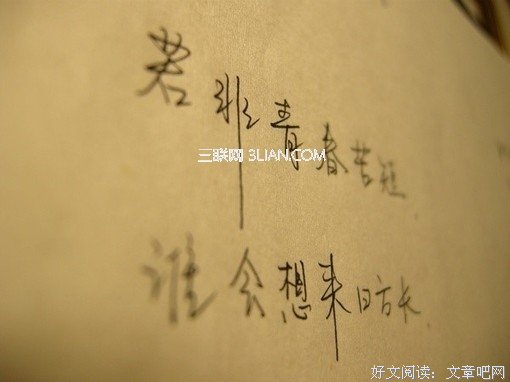 若非青春苦短
三联网 3LIAN.COM
谁会想来日方长
好文阅读：文章吧网